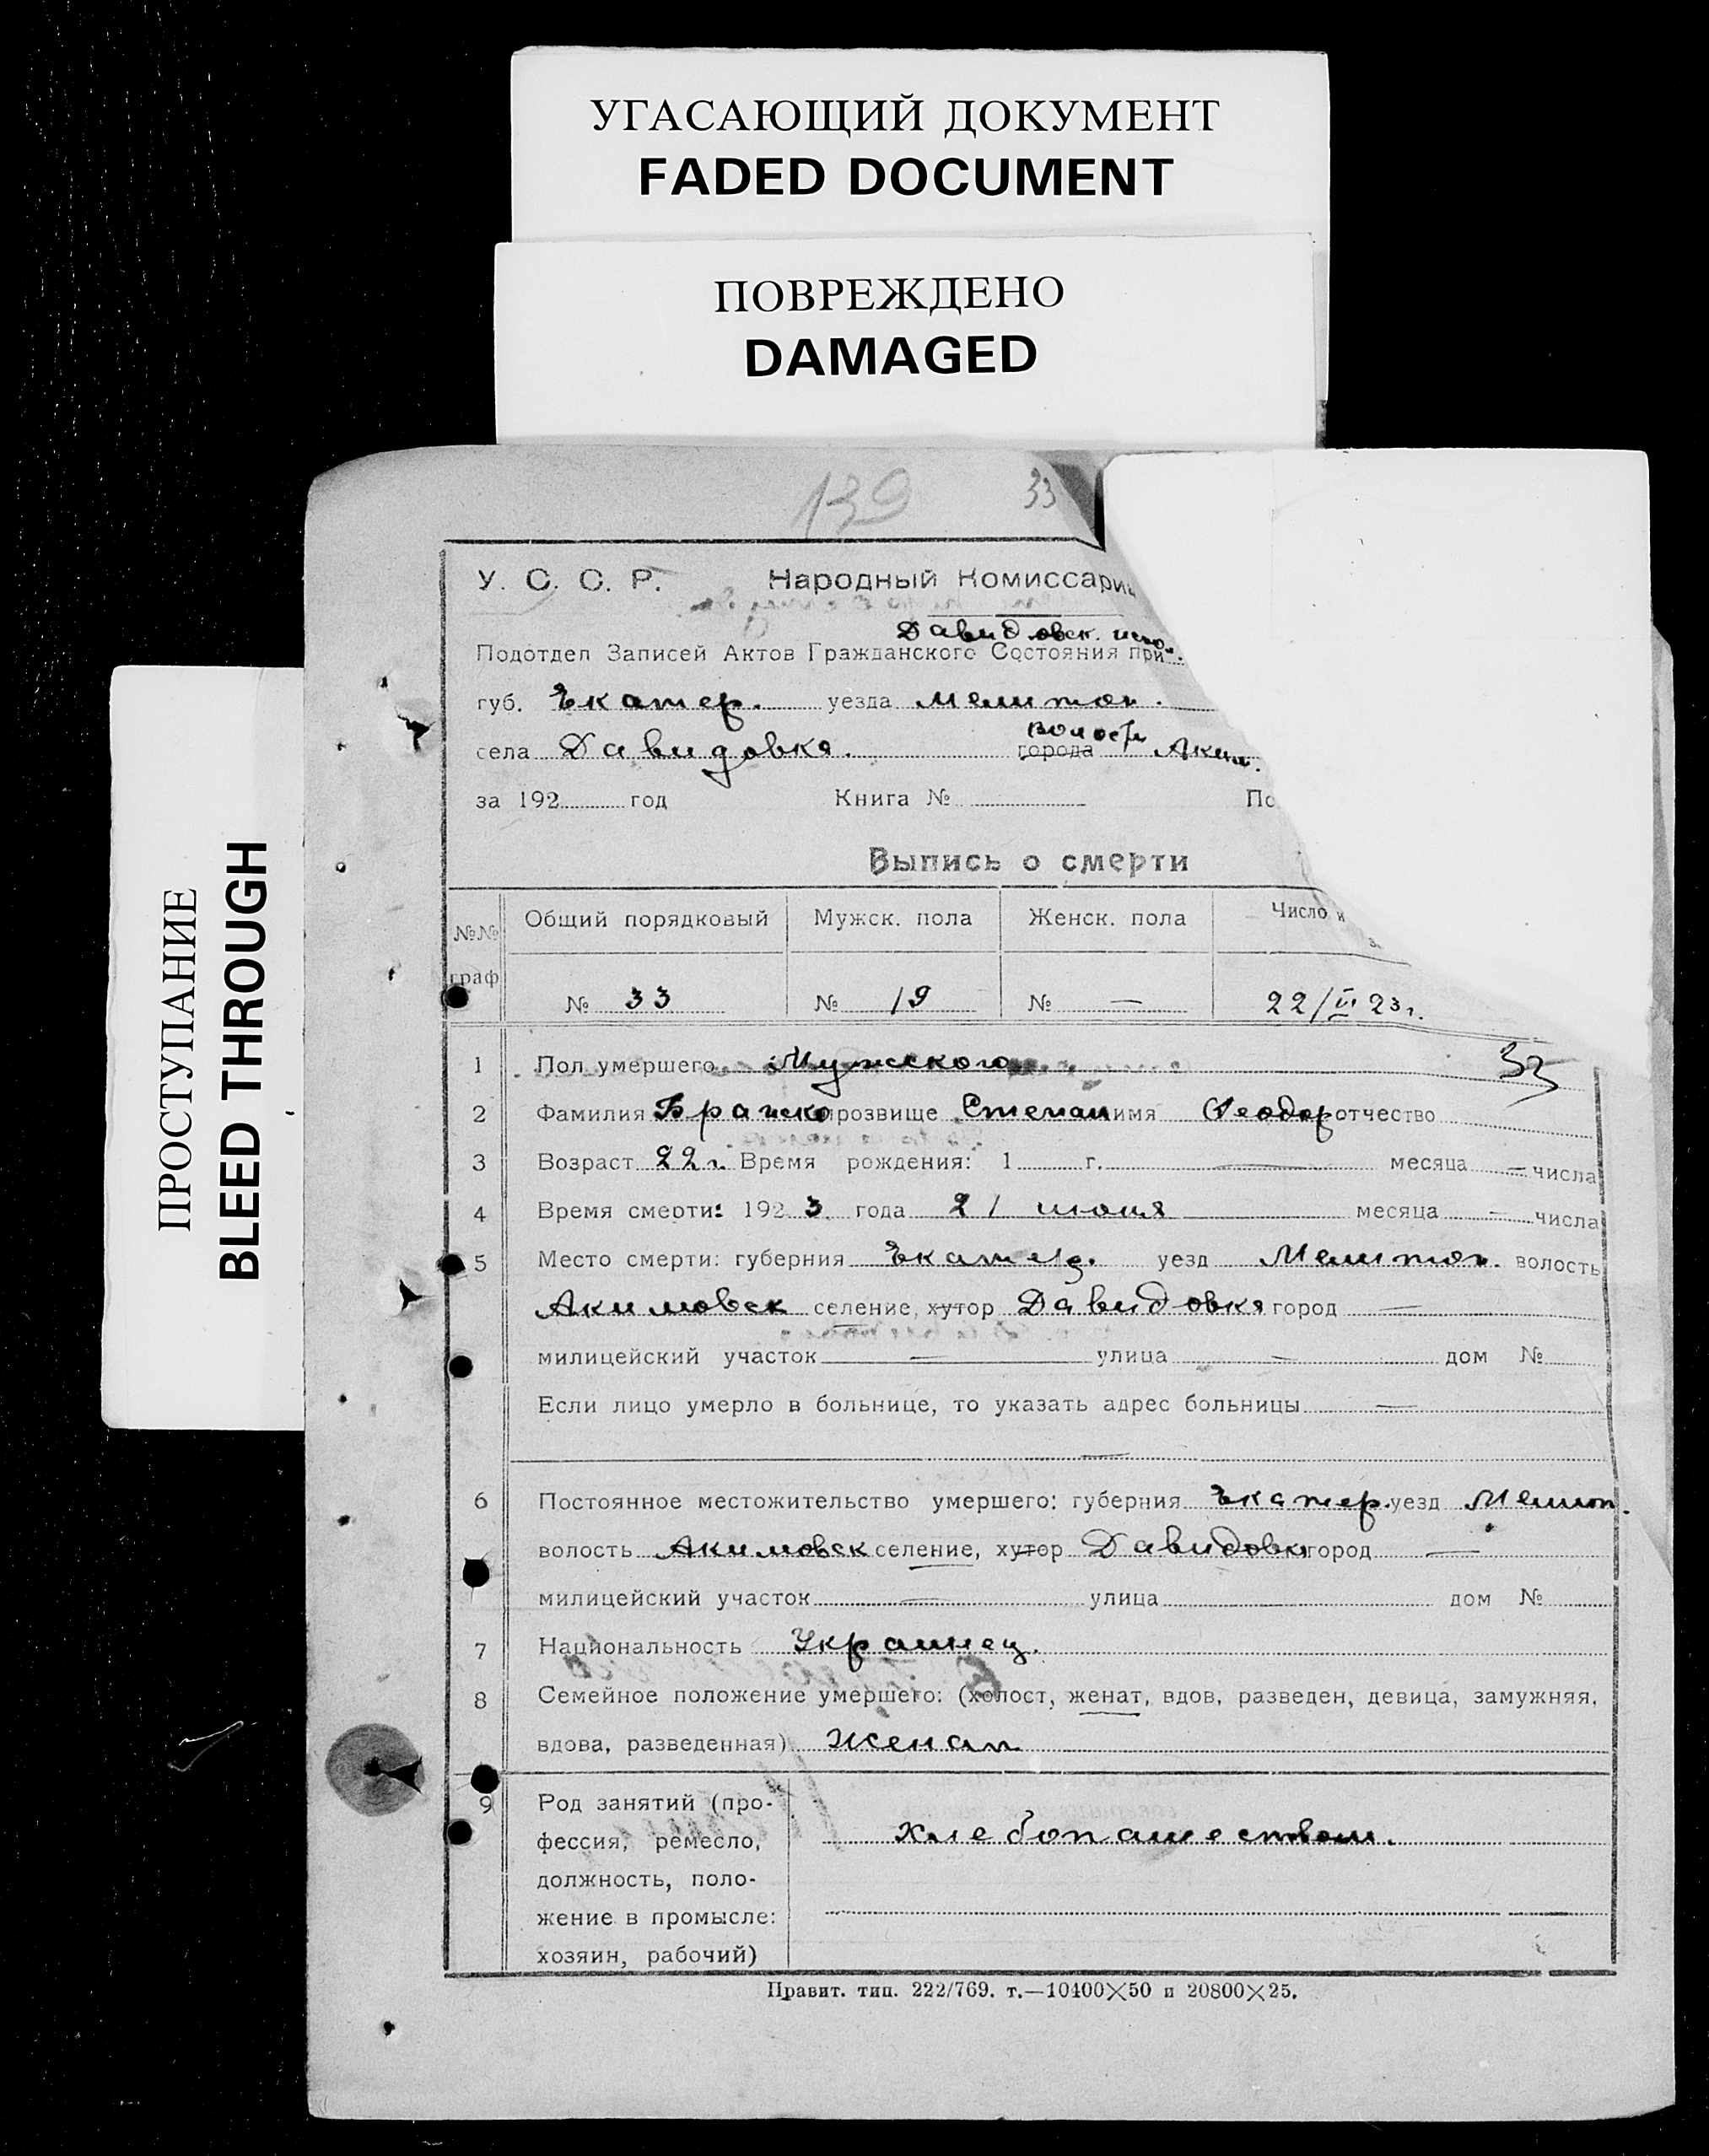 УГАСАЮЩИЙ ДОКУМЕНТ
FADED DOCUMENT
ПОВРЕЖДЕНО
DAMAGED
ПРОСТУПАНИЕ
BLEED THROUGH
139 33
У. С. С. Р. Народный Комиссари
Давидовск.
Подотдел Записей Актов Гражданского Состояния при
губ. Екатер. уезда Мелитоп.
села Давидовка. города волость Аким.
за 192 год Книга № По
Выпись о смерти
№№ граф Общий порядковый Мужск. пола Женск. пола Число и
№ 33 № 19 № — 22/VI 23 г.
33
1 Пол умершего Мужского
2 Фамилия прозвище Степан имя Феодор отчество
3 Возраст 22 г. Время рождения: 1 г. — месяца — числа
4 Время смерти: 192 3 года 21 июня месяца — числа
5 Место смерти: губерния Екатер. уезд Мелитоп. волость
Акимовск селение, хутор Давидовка город —
милицейский участок — улица — дом №
Если лицо умерло в больнице, то указать адрес больницы —
—
6 Постоянное местожительство умершего: губерния Екатер. уезд Мелитоп.
волость Акимовск селение, хутор Давидовка город —
милицейский участок — улица дом №
7 Национальность Украинец.
8 Семейное положение умершего: (холост, женат, вдов, разведен, девица, замужняя,
вдова, разведенная) Женат
9 Род занятий (про-
фессия, ремесло, Хлебопашеством.
должность, поло-
жение в промысле:
хозяин, рабочий)
Правит. тип. 222/769. т.—10400×50 и 20800×25.